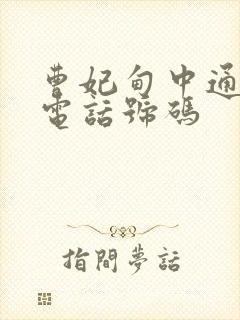 曹妃甸中通
電話號碼
指間夢話